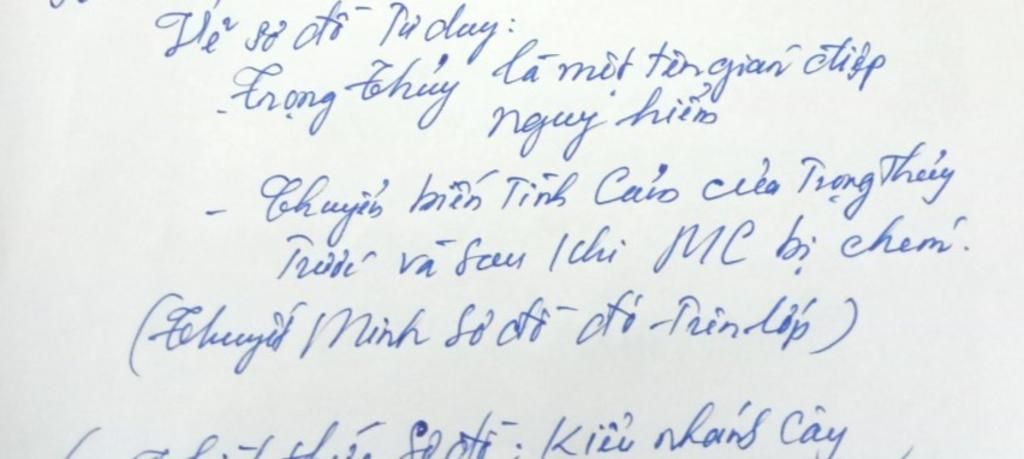 Vẽ sơ đồ Tư duy:
- Trọng Thủy là một tên gián điệp
nguy hiểm
- Chuyển biến Tình Cảm của Trọng Thủy
Trước và sau khi MC bị chém.
(Thuyết Minh Sơ đồ đó Trên lớp)
( thức Sơ đồ: Kiểu nhánh Cây